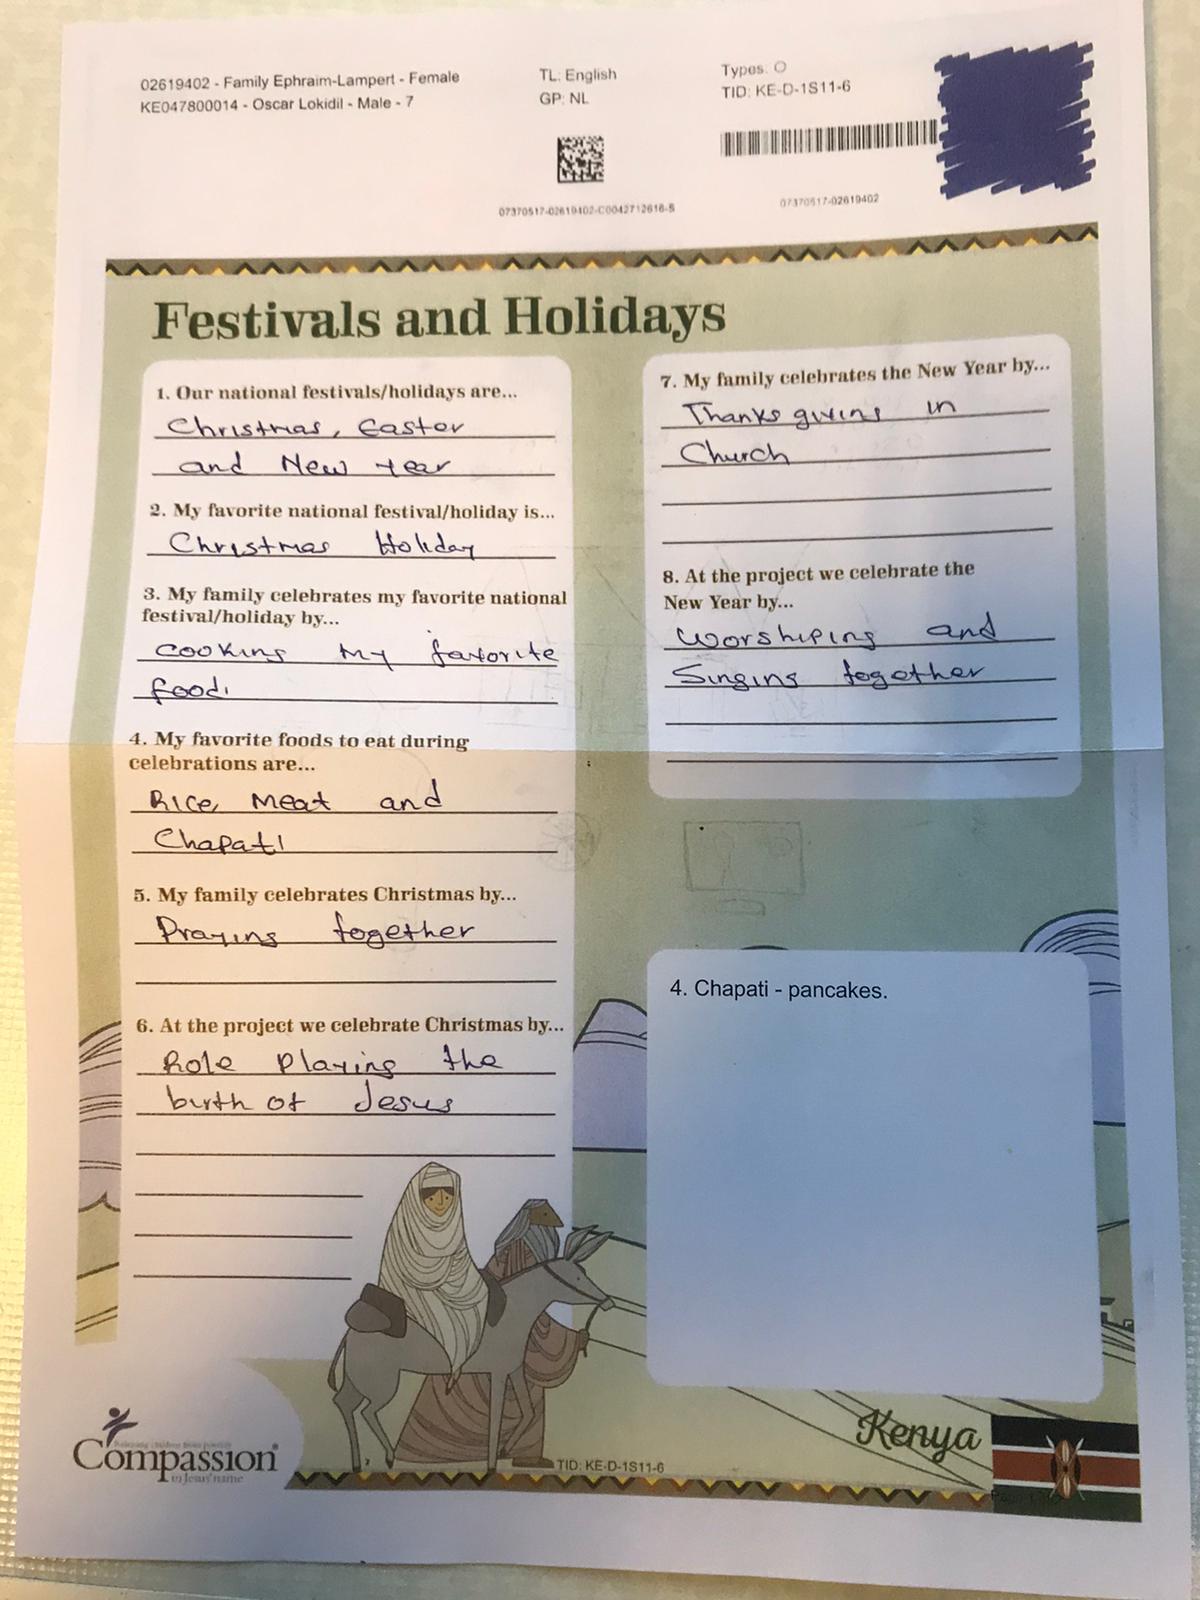 02619402 - Family Ephraim-Lampert - Female
KE047800014 - Oscar Lokidil - Male - 7
TL: English
GP: NL
Types: O
TID: KE-D-1S11-6
07370517-02619402-C0042712616-S
07370517-02619402
Festivals and Holidays
1. Our national festivals/holidays are...
Christmas, Easter
and New Year
2. My favorite national festival/holiday is...
Christmas Holiday
3. My family celebrates my favorite national
festival/holiday by...
Cooking my favorite
food.
4. My favorite foods to eat during
celebrations are...
Rice, Meat and
Chapati
5. My family celebrates Christmas by...
Praying together
6. At the project we celebrate Christmas by...
Role playing the
birth of Jesus
7. My family celebrates the New Year by...
Thanks giving in
Church
8. At the project we celebrate the
New Year by...
Worshiping and
Singing together
4. Chapati - pancakes.
Compassion
in Jesus' name
TID: KE-D-1S11-6
Kenya